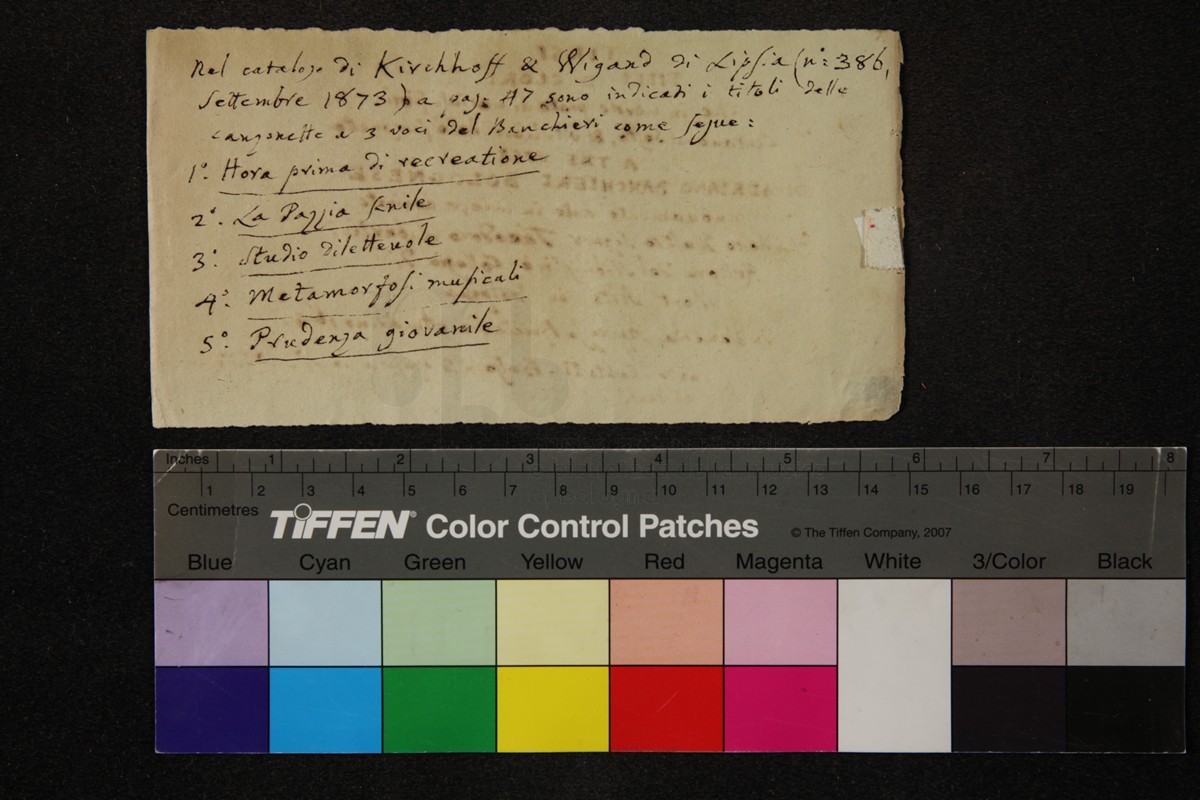 Nel catalogo di Kirchhoff & Wigand di Lipsia (n.º 386,
Settembre 1873) a pag: 47 sono indicati i titoli delle
canzonette a 3 voci del Banchieri come segue:
1º. Hora prima di recreatione
2º. La Pazzia senile
3º. Studio dilettevole
4º. Metamorfosi musicali
5º. Prudenza giovanile
Inches 1 2 3 4 5 6 7 8
1 2 3 4 5 6 7 8 9 10 11 12 13 14 15 16 17 18 19
Centimetres
TIFFEN® Color Control Patches © The Tiffen Company, 2007
Blue Cyan Green Yellow Red Magenta White 3/Color Black